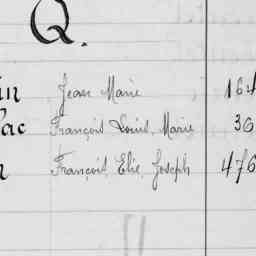 Q.
in Jean Marie 164
ac François Louis, Marie 36
François, Elie, Joseph 476